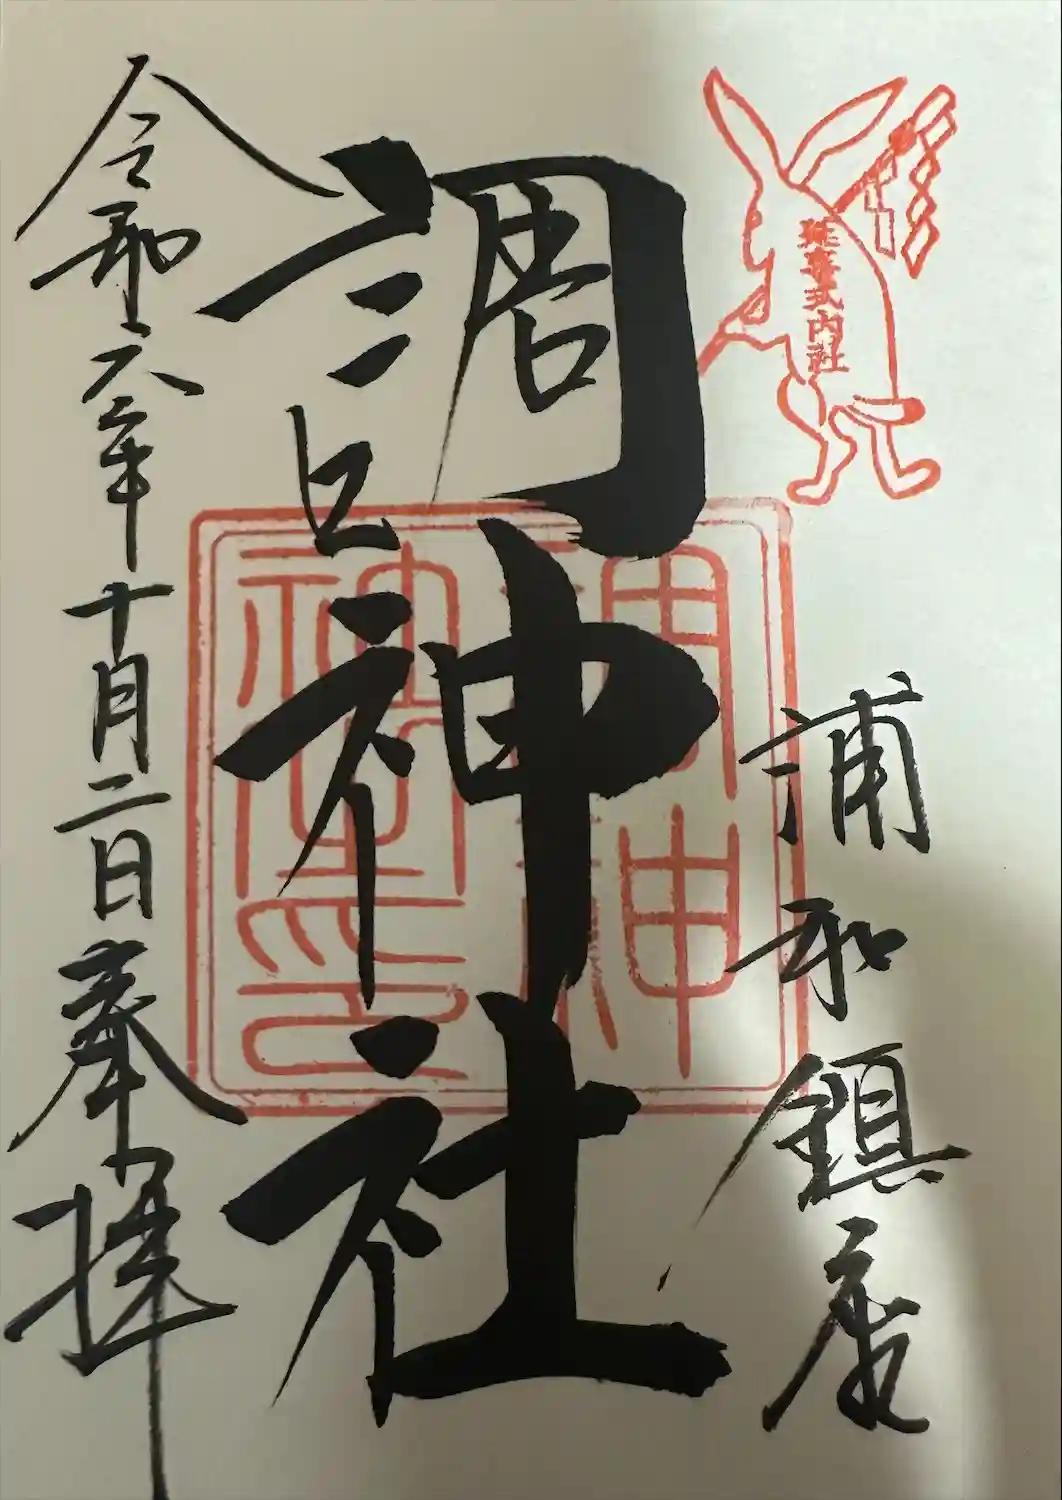 延喜式内社
浦和鎮座
調神社
調神
神社印
令和六年十月二日奉拝